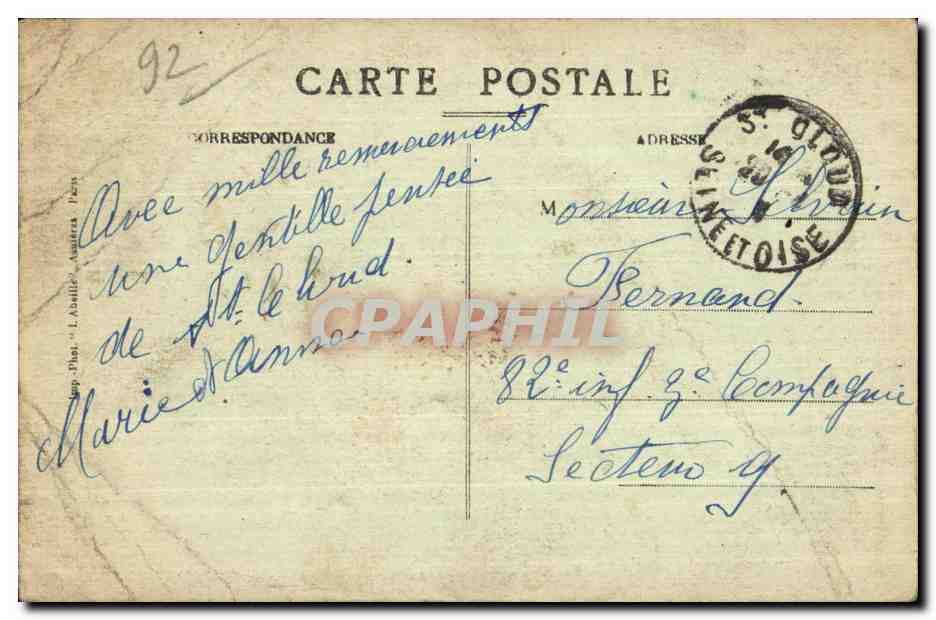 92
CARTE POSTALE
CORRESPONDANCE
ADRESSE
Avec mille remerciements
une gentille pensée
de St. Cloud.
Marie et Anna
Monsieur Silvain
Fernand
82e inf 7e Compagnie
Secteur 9
ST CLOUD
SEINE ET OISE
Imp.-Phot. "L'Abeille", Asnières Paris
CPAPHIL